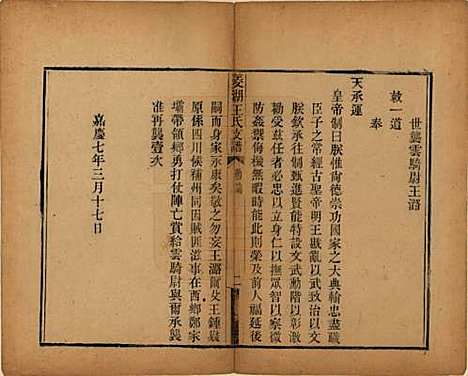 世襲雲騎尉王潞
敕一道
奉
天承運
皇帝制曰朕惟尙德崇功國家之大典輸忠盡職
臣子之常經古聖帝明王戡亂以武致治以文
朕欽承往制甄進賢能特設文武勳階以彰激
勸受茲任者必忠以立身仁以撫眾智以察微
防姦禦侮機無暇時能此則榮及前人福延後
菱湖王氏支譜
嗣而身家永康矣敬之勿妄王潞爾父王鍾嶽
原係四川候補州同因賊匪滋事在酉鄉鄭家
壩帶領鄉勇打仗陣亡賞給雲騎尉與爾承襲
准再襲壹次
嘉慶七年三月十七日